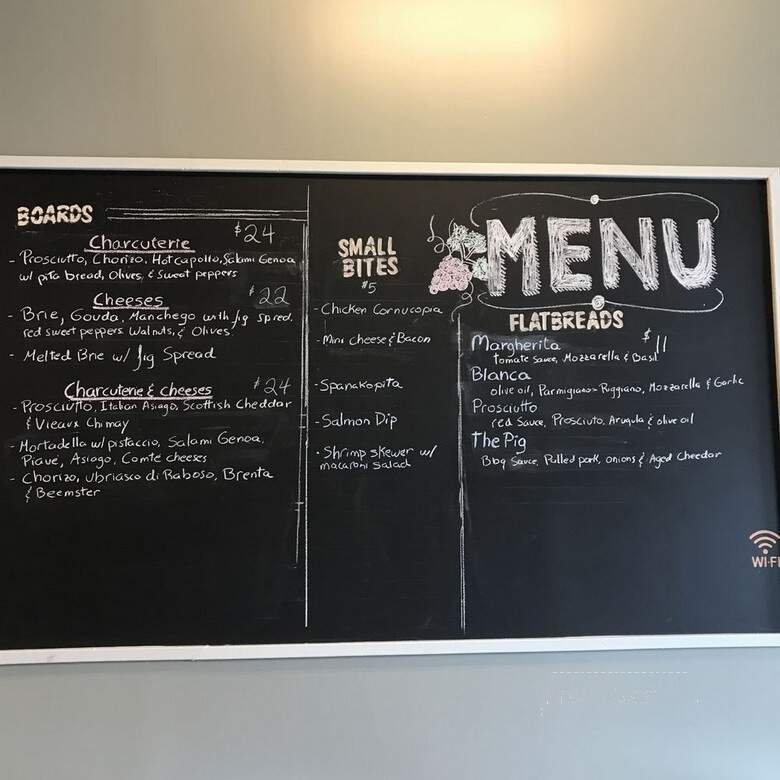 BOARDS
Charcuterie $24
- Prosciutto, Chorizo, Hot capollo, Salami Genoa
w/ pita bread, Olives, & Sweet peppers
Cheeses $22
- Brie, Gouda, Manchego with fig spred,
red sweet peppers Walnuts, & Olives
- Melted Brie w/ fig Spread
Charcuterie & cheeses $24
- Prosciutto, Italian Asiago, Scottish Cheddar
& Vieaux Chimay
- Mortadella w/ pistaccio, Salami Genoa,
Piave, Asiago, Comte cheeses
- Chorizo, Ubriasco di Raboso, Brenta
& Beemster
SMALL
BITES
$5
- Chicken Cornucopia
- Mini cheese & Bacon
- Spanakopita
- Salmon Dip
- Shrimp skewer w/
macaroni salad
MENU
FLATBREADS
Margherita $11
tomate sauce, Mozzarella & Basil
Blanca
olive oil, Parmigiano-Riggiano, Mozzarella & Garlic
Prosciutto
red Sauce, Prosciuto, Arugula & olive oil
The Pig
Bbq Sauce, Pulled pork, onions & Aged Chedar
WI-FI